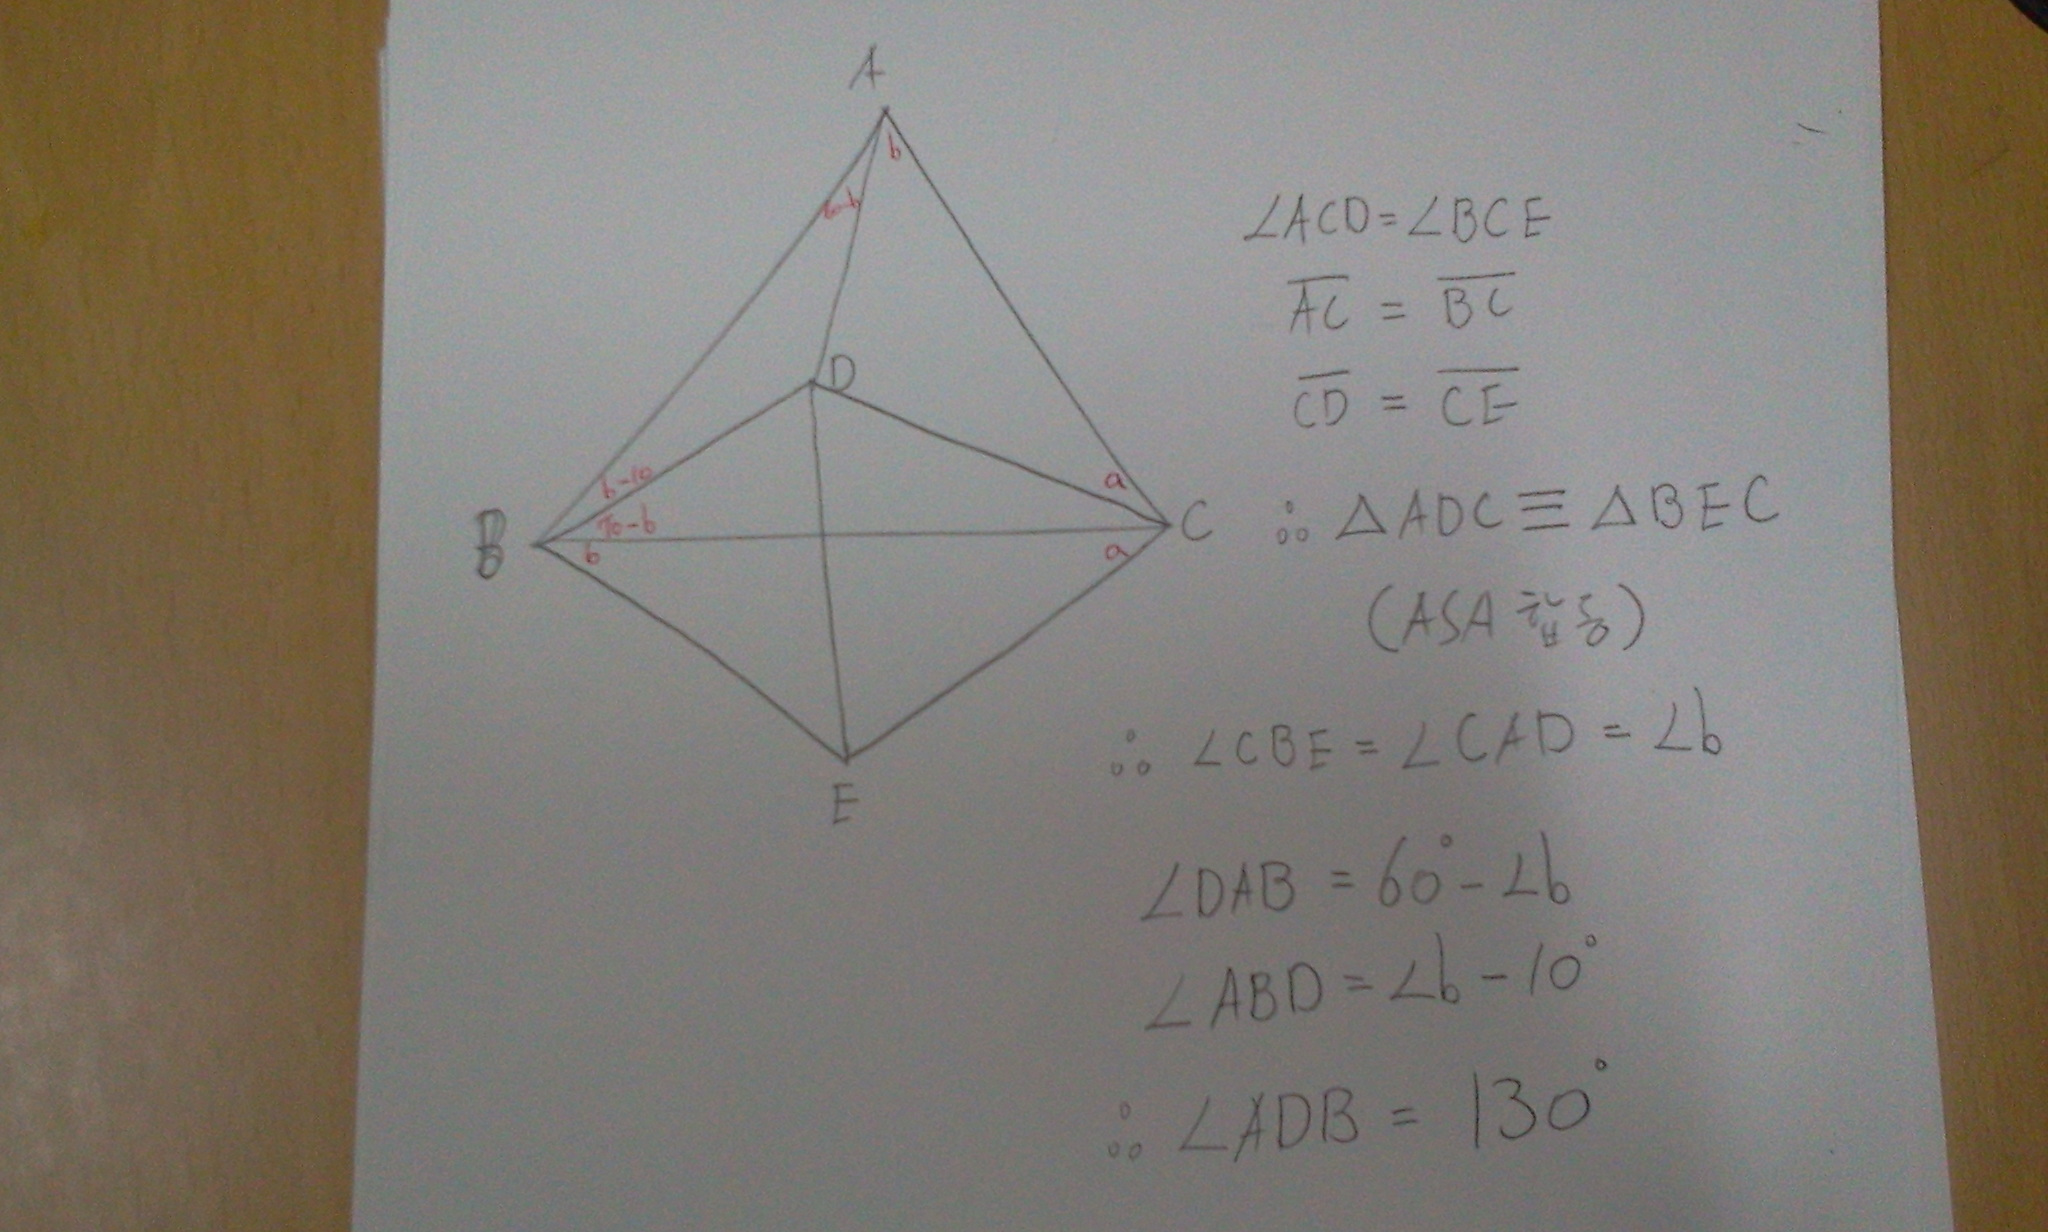 A
b
60-b
D
b-10
70-b
b
a
a
B
C
E
∠ACD=∠BCE
A̅C̅ = B̅C̅
C̅D̅ = C̅E̅
∴ △ADC≡△BEC
(ASA 합동)
∴ ∠CBE = ∠CAD = ∠b
∠DAB = 60°-∠b
∠ABD = ∠b-10°
∴ ∠ADB = 130°